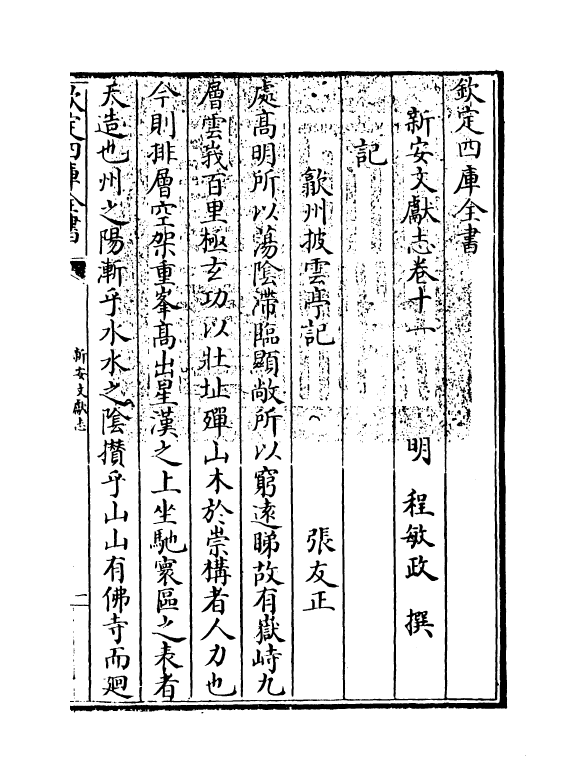 欽定四庫全書
新安文獻志卷十一 明 程敏政 撰
記
歙州披雲亭記 張友正
處高明所以蕩陰滯臨顯敞所以窮遠睇故有嶽峙九
層雲峩百里極玄功以壯址殫山木於崇構者人力也
今則排層空架重峯髙出星漢之上坐馳寰區之表者
天造也州之陽漸乎水水之陰攅乎山山有佛寺而廻
欽定四庫全書
新安文獻志